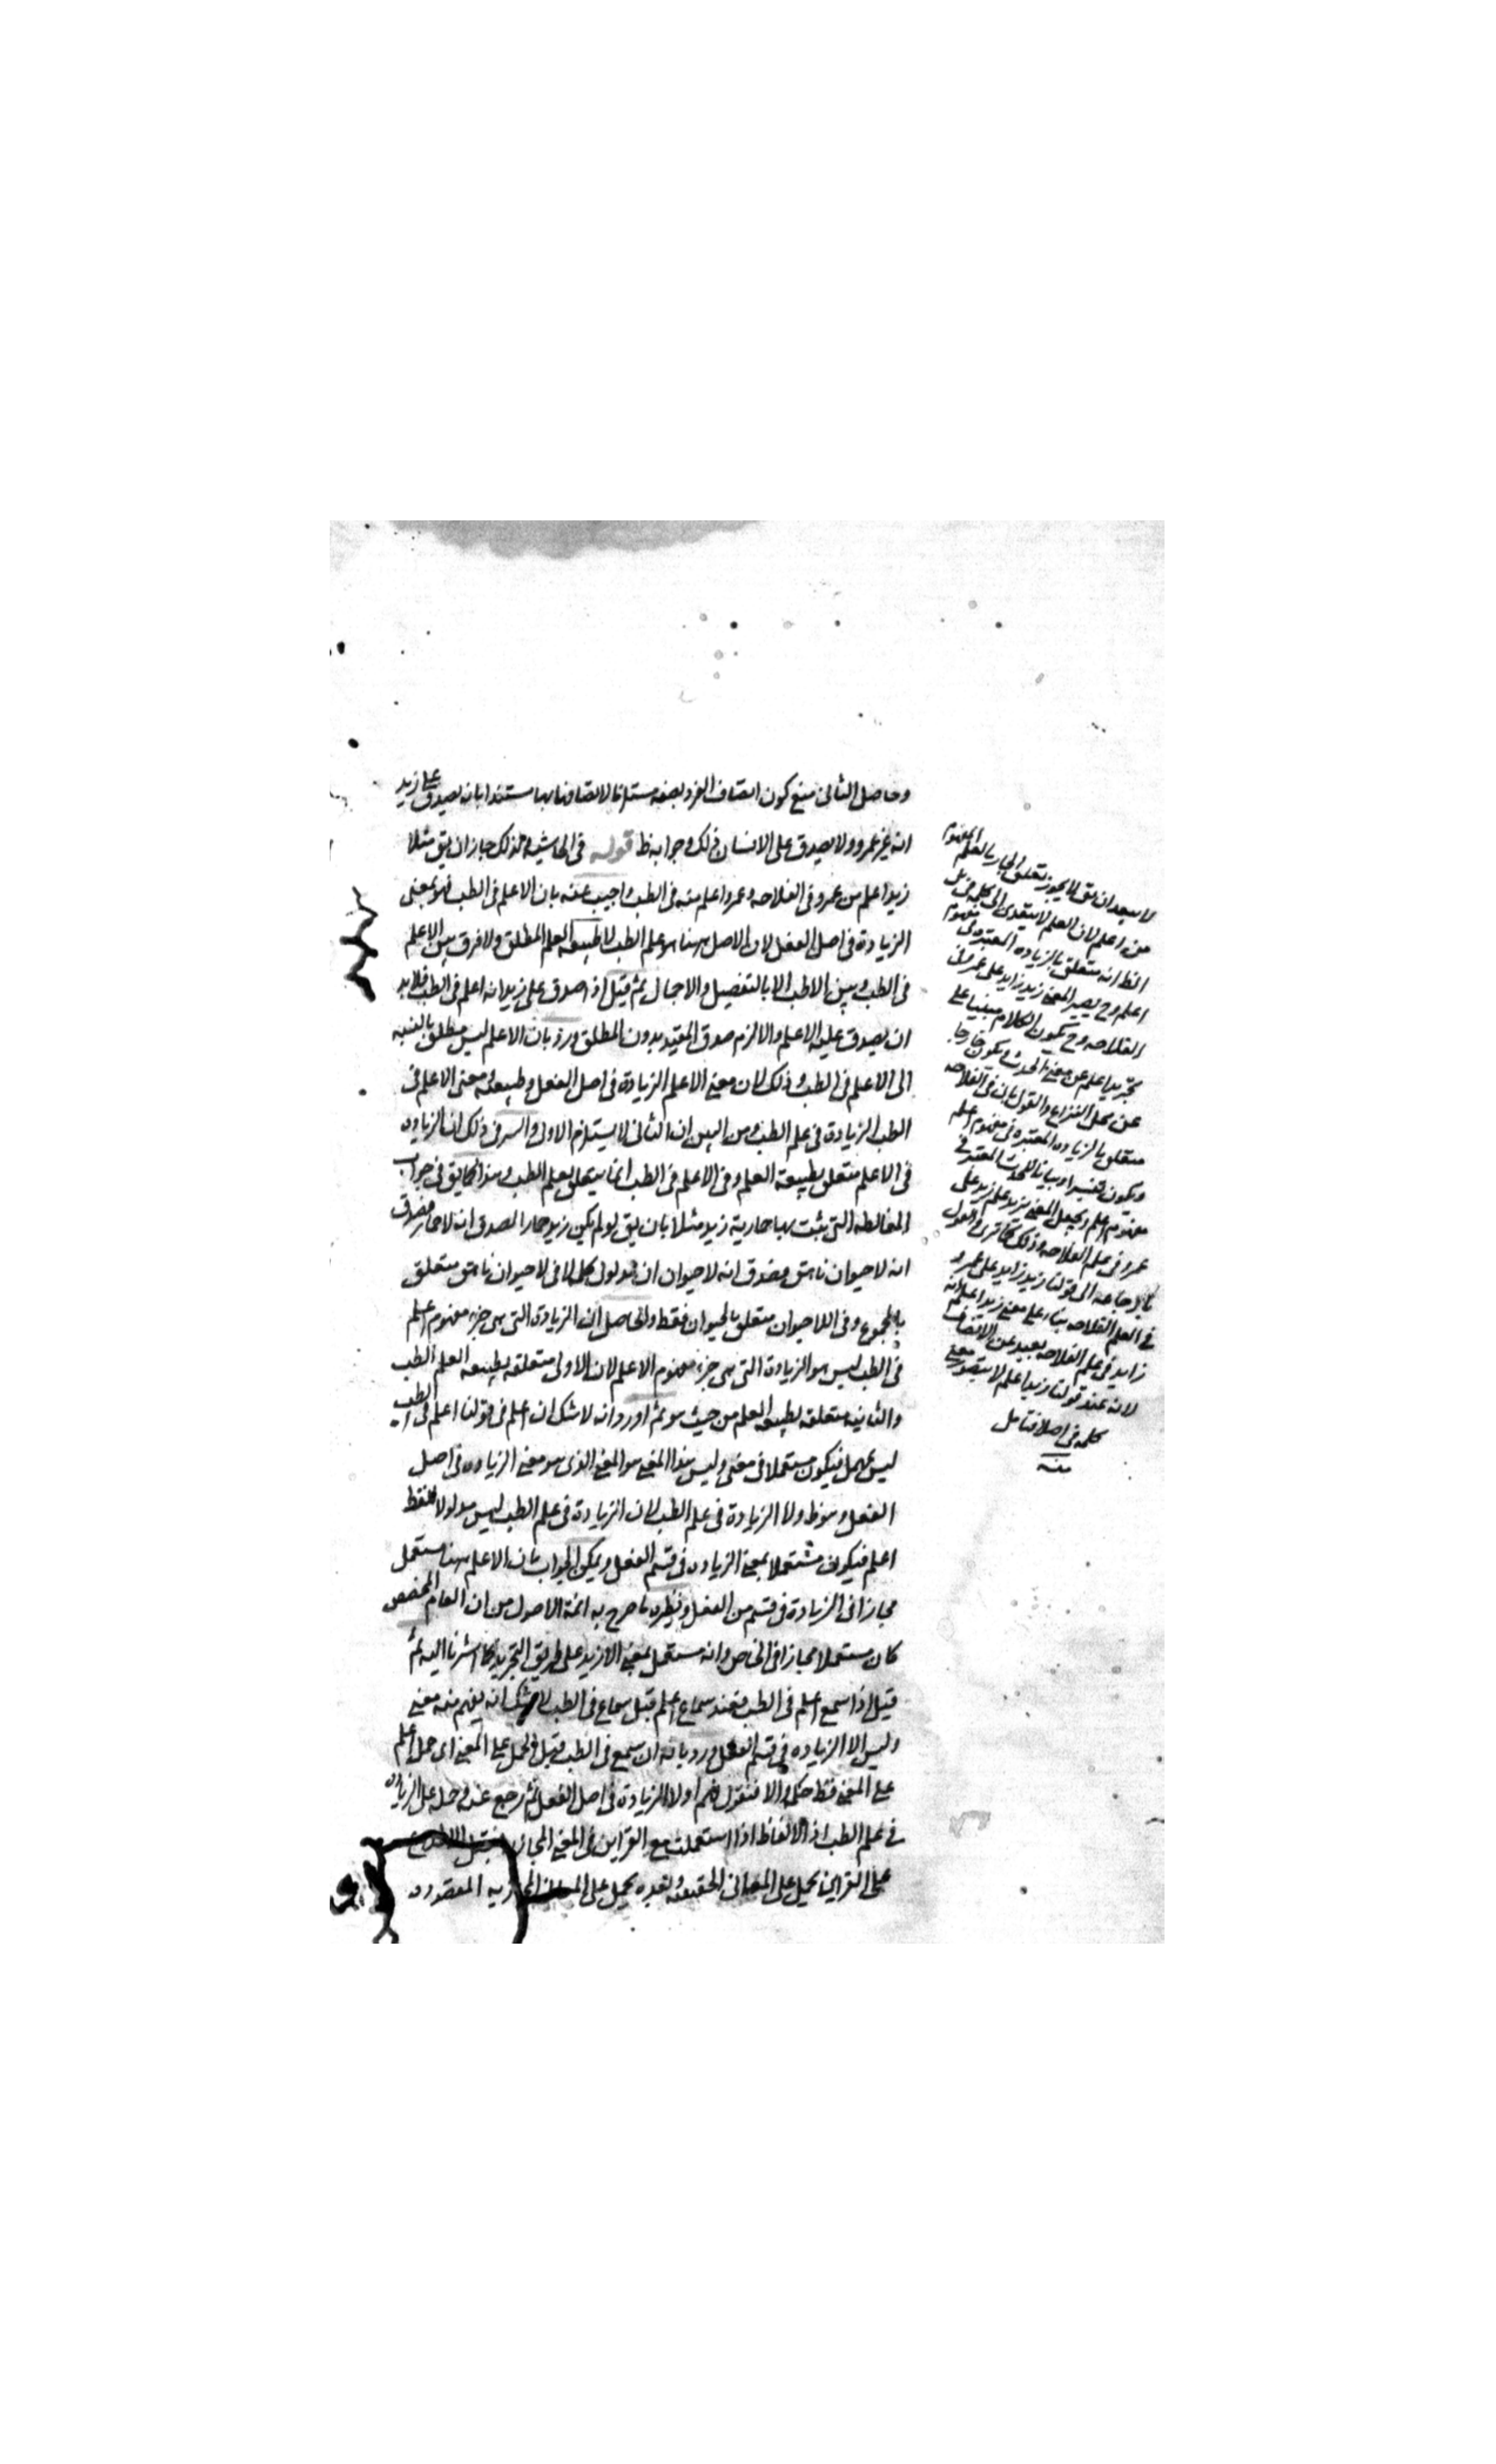 وحاصل الثانى منع كون اتصاف الفرد بصفة مستلزما لاتصافها بها مستندا بانه يصدق على زيد
انه غير عمرو ولا يصدق على الانسان ذلك وجوابه ظ قوله فى الحاشية ولذلك جاز ان يق مثلا
زيد اعلم من عمرو فى الفلاحه وعمرو اعلم منه فى الطب واجيب عنه بان الاعلم فى الطب فهو بمعنى
الزيادة فى اصل الفعل لان الاصل ههنا هو علم الطب لا طبيعه العلم المطلق ولا فرق بين الاعلم
فى الطب وبين الاطب الا بالتفصيل والاجمال ثم قيل اذا صدق على زيد انه اعلم فى الطب فلابد
ان يصدق عليه الاعلم والا لزم صدق المقيد بدون المطلق ورد بان الاعلم ليس مطلق بالنسبه
الى الاعلم فى الطب وذلك لان معنى الاعلم الزيادة فى اصل الفعل وطبيعته ومعنى الاعلم فى
الطب الزيادة فى علم الطب ومن البين ان الثانى لا يستلزم الاول والسر فى ذلك ان الزياده
فى الاعلم متعلق بطبيعة العلم وفى الاعلم فى الطب انما يتعلق بعلم الطب وهذا كما يق فى جواب
المغالطه التى يثبت بها حمارية زيد مثلا بان يق لو لم يكن زيد حمارا لصدق انه لا حمار فصدق
انه لا حيوان ناهق وصدق انه لا حيوان ان مدلول كلمة لا فى لا حيوان ناهق متعلق
بالمجموع وفى اللاحيوان متعلق بالحيوان فقط والحاصل ان الزيادة التى هى جزء مفهوم اعلم
فى الطب ليس هو الزيادة التى هى جزء مفهوم الاعلم لان الاولى متعلقه بطبيعه العلم الطب
والثانيه متعلقه بطبيعه العلم من حيث هو ثم اورد انه لا شك ان اعلم فى قولنا اعلم فى الطب
ليس بمهمل فيكون مستعملا فى معنى وليس هذا المعنى هو المعنى الذى هو معنى الزياده فى اصل
الفعل وهو ظ ولا الزيادة فى علم الطب لان الزيادة فى علم الطب ليس مدلولا للفظ
اعلم فيكون مستعملا بمعنى الزياده فى قسم الفعل ويمكن الجواب بان الاعلم ههنا مستعمل
مجازا فى الزيادة فى قسم من الفعل ونظيره ما صرح به ائمة الاصول من ان العام المخصص
كان مستعملا مجازا فى الخاص وانه مستعمل بمعنى الازيد على طريق التجريد كما اشرنا اليه ثم
قيل اذا سمع اعلم فى الطب فعند سماع اعلم قبل سماع فى الطب لا شك انه يفهم منه معنى
وليس الا الزياده فى قسم الفعل ورد بانه ان سمع فى الطب قبل حمل على المعنى اى حمل اعلم
على المعنى فقط حكمه والا فنقول فهم اولا الزيادة فى اصل الفعل ثم رجع عنه وحمله على الزياده
فى علم الطب اذ الالفاظ اذا استعملت مع القراين فى المعنى المجازى فقبل الاطلاع
على القراين يحمل على المعانى الحقيقيه وبعده يحمل على المعانى المجازيه المقصوده
لا يبعد ان يق لا يجوز تعلق الجار بالعلم المفهوم
من اعلم لان العلم لا يتعدى الى كلمة فى بل
الظ انه متعلق بالزياده المعتبره فى مفهوم
اعلم وح يصير المعنى زيد زايد على عمرو فى
الفلاحه وح يكون الكلام مبنيا على
تجريد اعلم عن معنى الحدث ويكون خارجا
عن محل النزاع والقول بان فى الفلاحه
متعلق بالزياده المعتبره فى مفهوم اعلم
ويكون تفسيرا وبيانا للحدث المعتبر فى
مفهوم اعلم ويجعل المعنى يزيد علم زيد على
عمرو فى علم الفلاحه وذلك كما ترى والقول
بارجاعه الى قولنا زيد زايد على عمرو
فى العلم الفلاحه بناء على معنى زيد اعلم انه
زايد فى علم الفلاحه بعيد عن الانصاف
لانه عند قولنا زيد اعلم لا يتصور معنى
كلمه فى اصلا فتامل
منه